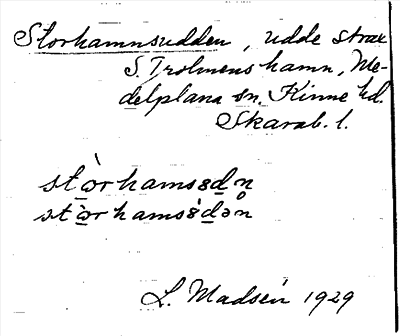 Storhamnsudden, udde strax
S. Trolmens hamn, Me-
delplana sn. Kinne hd.
Skarab. l.
stòrhamsɞdn̥
stòrhamsɞ̀dən
L. Madsén 1929